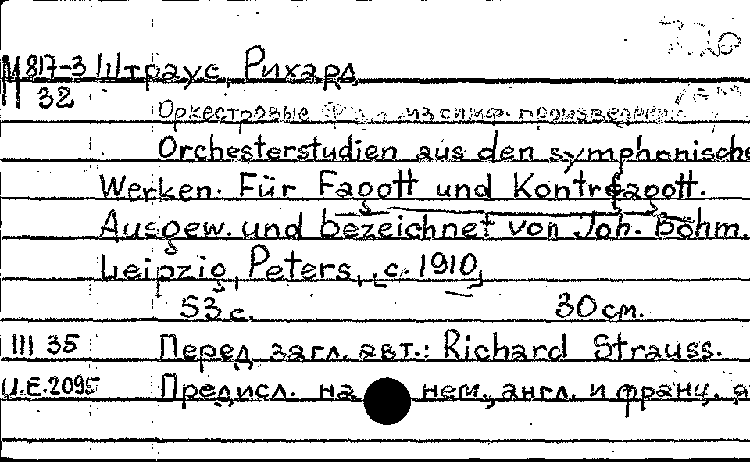 М 817-3 Штраус, Рихард
32
Оркестровые из симф. произведений
Orchesterstudien aus den symphonische
Werken. Für Fagott und Kontrafagott.
Ausgew. und bezeichnet von Joh. Böhm.
Leipzig, Peters, [c. 1910]
53 с. 30 см.
III 35 Перед загл. авт.: Richard Strauss.
U.E.2095 Предисл. на нем., англ. и франц. я